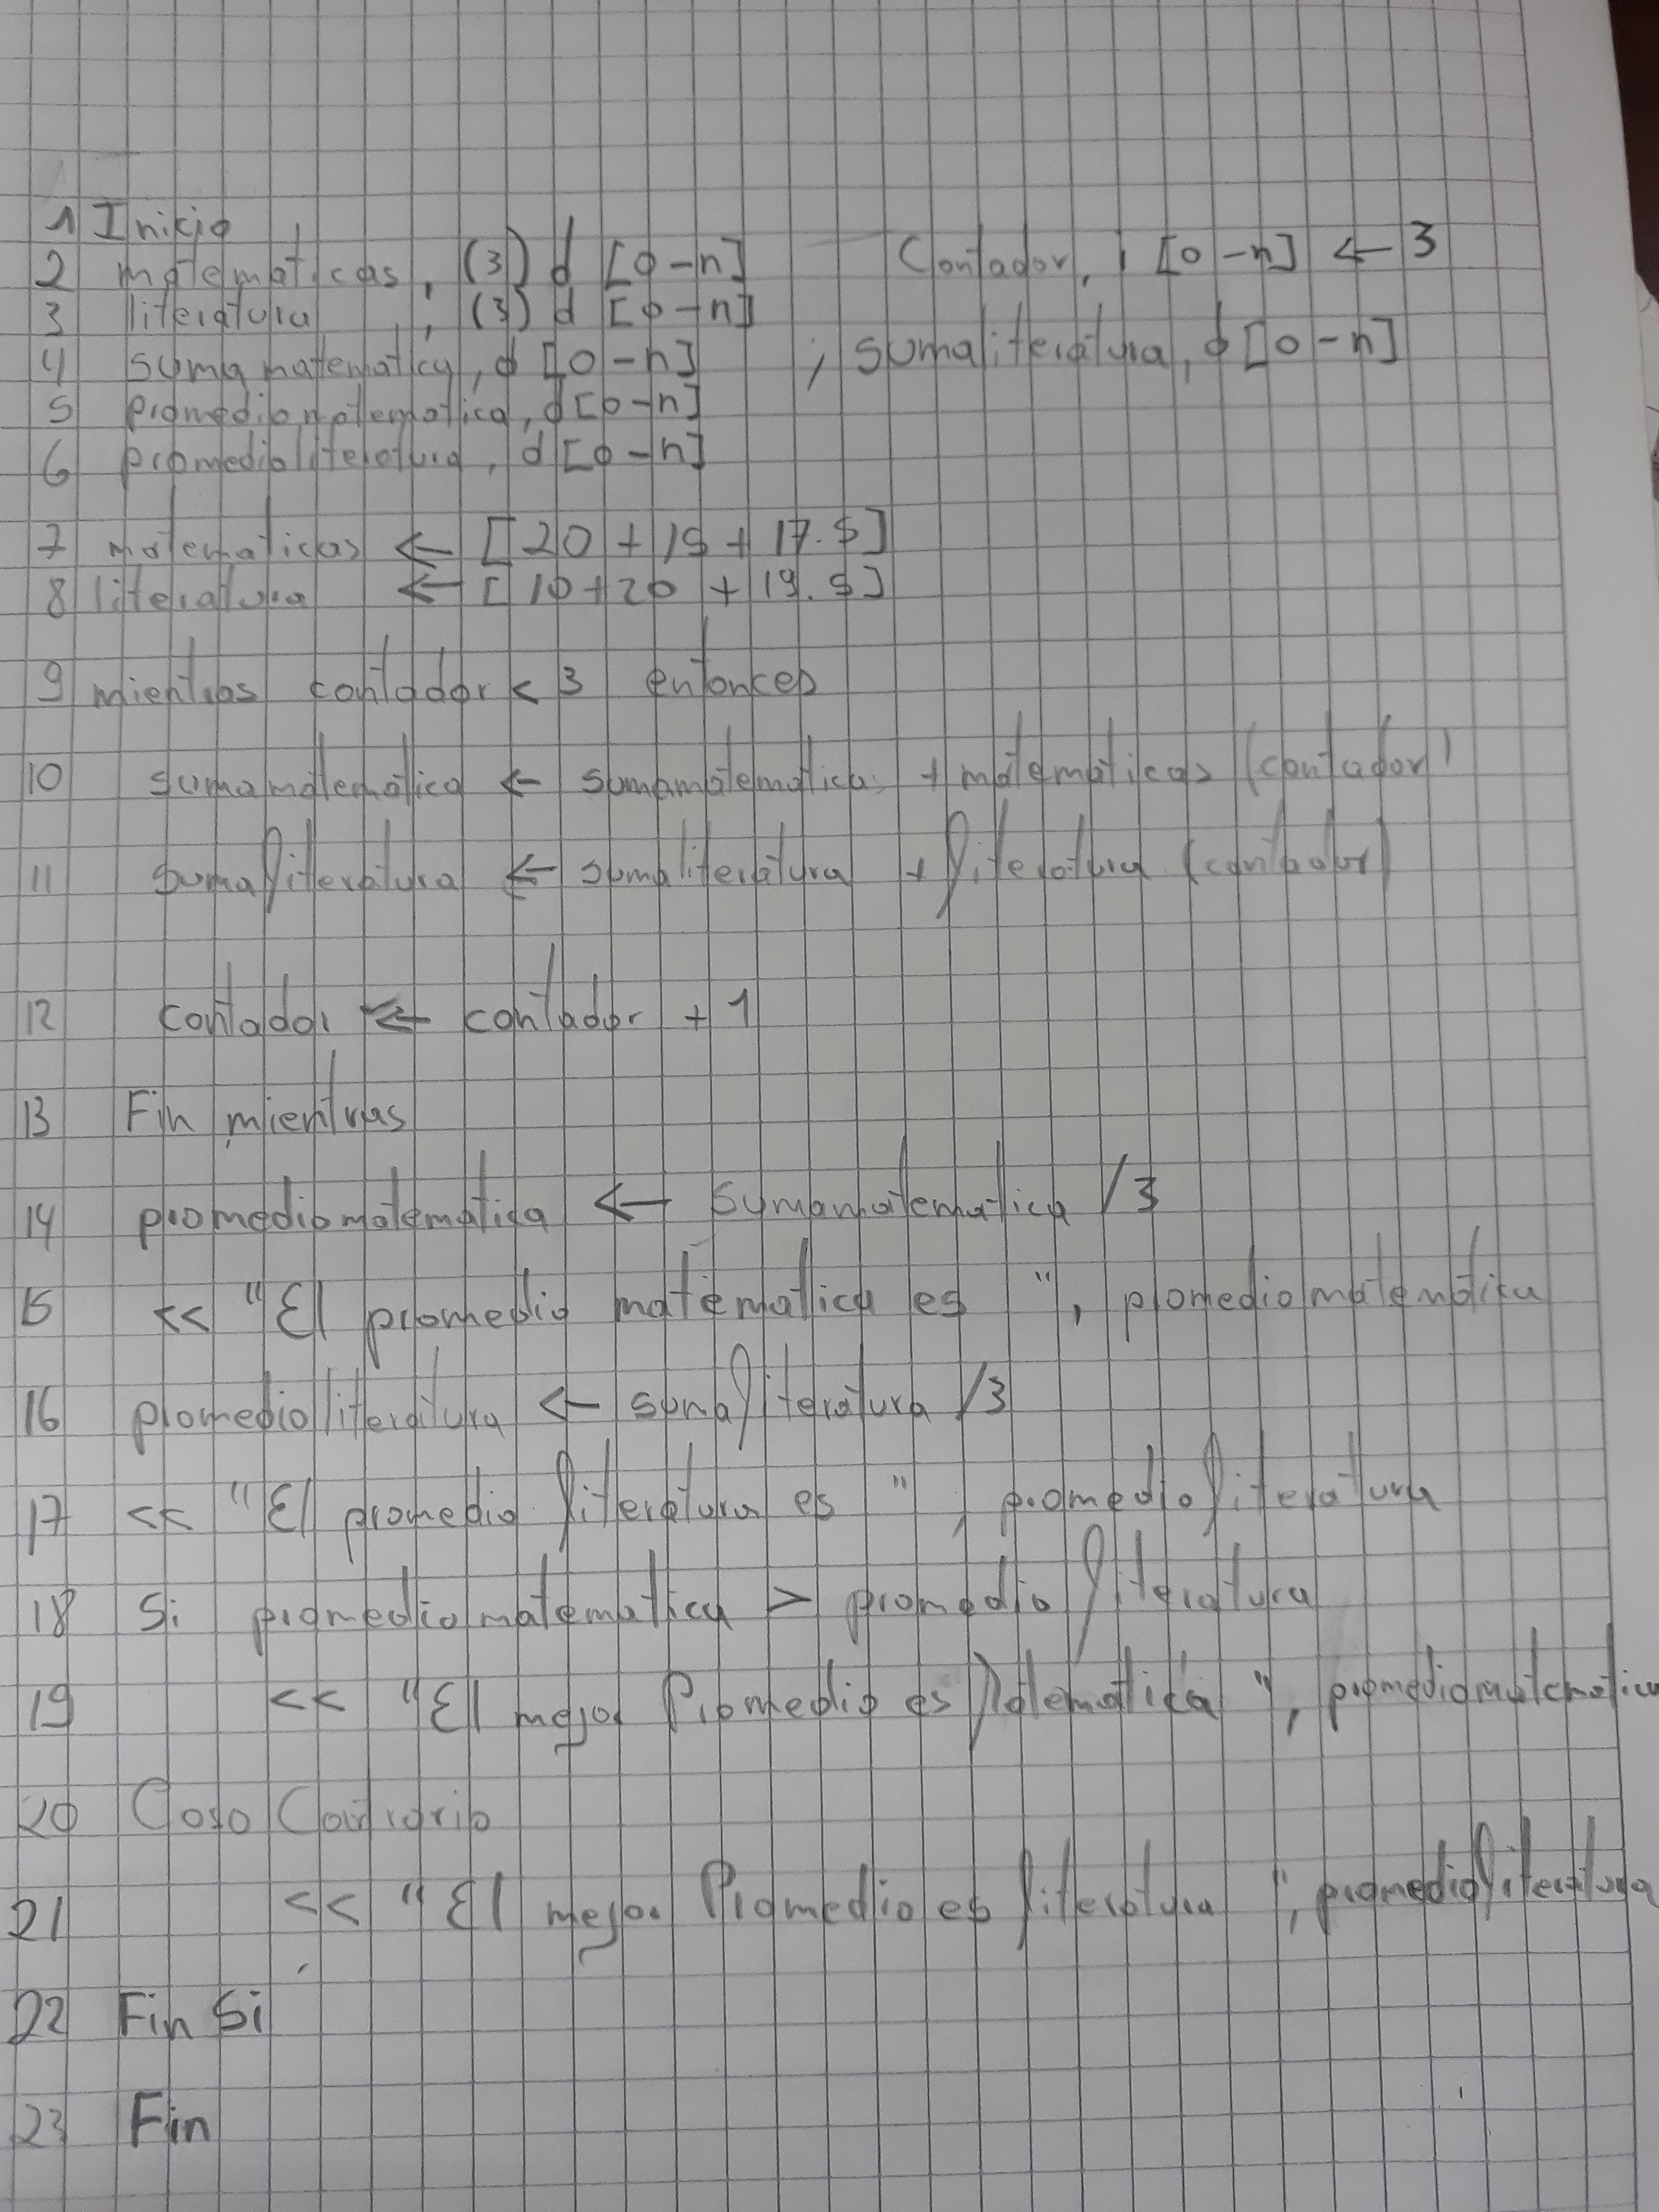 1 Inicio
2 matematicas, (3) d [0-n] Contador, i [0-n] ← 3
3 literatura, (3) d [0-n]
4 sumamatematica, d [0-n] ; sumaliteratura, d [0-n]
5 promediomatematica, d [0-n]
6 promedioliteratura, d [0-n]
7 matematicas ← [20 + 15 + 17.5]
8 literatura ← [10+20 + 19.5]
9 mientras contador < 3 entonces
10 sumamatematica ← sumamatematica + matematicas (contador)
11 sumaliteratura ← sumaliteratura + literatura (contador)
12 contador ← contador + 1
13 Fin mientras
14 promediomatematica ← sumamatematica /3
15 << "El promedio matematica es ", promediomatematica
16 promedioliteratura ← sumaliteratura /3
17 << "El promedio literatura es ", promedioliteratura
18 Si promediomatematica > promedioliteratura
19 << "El mejor Promedio es Matematica ", promediomatematica
20 Caso Contrario
21 << "El mejor Promedio es literatura ", promedioliteratura
22 Fin Si
23 Fin